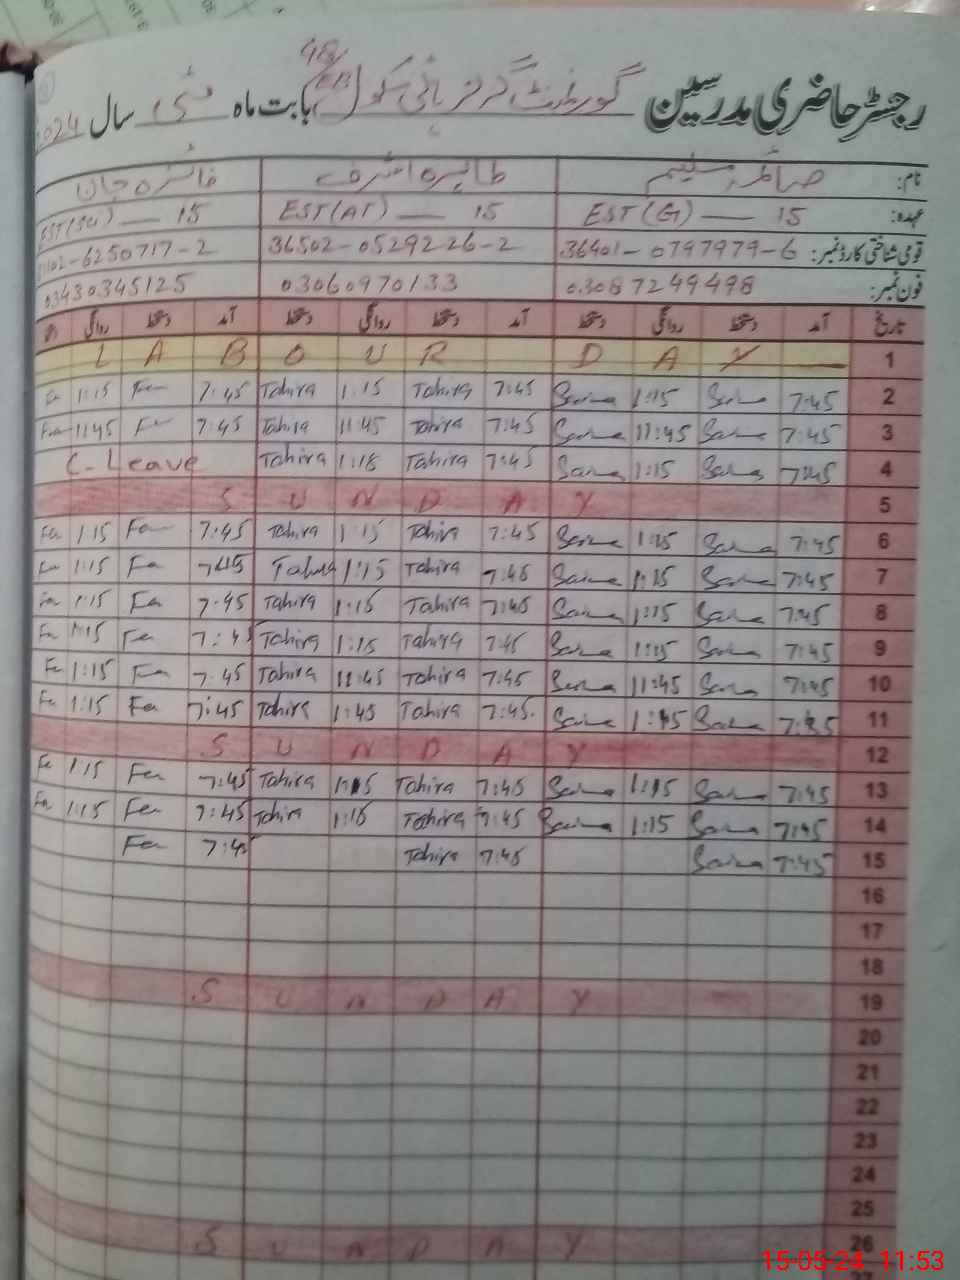 رجسٹر حاضری مدرسین گورنمنٹ گرلز ہائی سکول 48 بابت ماہ مئی سال 2024
نام: صائمہ سلیم طاہرہ اشرف فائزہ جان
عہدہ: EST(G) — 15 EST(AT) — 15 EST(Sci) — 15
قومی شناختی کارڈ نمبر: 36401-0797979-6 36502-0529226-2 6250717-2
فون نمبر: 03087249498 03060970133 03430345125
تاریخ آمد دستخط روانگی دستخط آمد دستخط روانگی دستخط آمد دستخط روانگی
L A B O U R D A Y 1
Fa 1:15 Fa 7:45 Tahira 1:15 Tahira 7:45 Saima 1:15 Saima 7:45 2
Fa 11:45 Fa 7:45 Tahira 11:45 Tahira 7:45 Saima 11:45 Saima 7:45 3
C. Leave Tahira 1:15 Tahira 7:45 Saima 1:15 Saima 7:45 4
S U N D A Y 5
Fa 1:15 Fa 7:45 Tahira 1:15 Tahira 7:45 Saima 1:15 Saima 7:45 6
Fa 1:15 Fa 7:45 Tahira 1:15 Tahira 7:45 Saima 1:15 Saima 7:45 7
Fa 1:15 Fa 7:45 Tahira 1:15 Tahira 7:45 Saima 1:15 Saima 7:45 8
Fa 1:15 Fa 7:45 Tahira 1:15 Tahira 7:45 Saima 1:15 Saima 7:45 9
Fa 1:15 Fa 7:45 Tahira 11:45 Tahira 7:45 Saima 11:45 Saima 7:45 10
Fa 1:15 Fa 7:45 Tahira 1:45 Tahira 7:45 Saima Saima 7:45 11
S U N D A Y 12
Fa 1:15 Fa 7:45 Tahira 1:15 Tahira 7:45 Saima 1:15 Saima 7:45 13
Fa 1:15 Fa 7:45 Tahira 1:15 Tahira 7:45 Saima 1:15 Saima 7:45 14
Fa 7:45 Tahira 7:45 Saima 7:45 15
16
17
18
S U N D A Y 19
20
21
22
23
24
25
S U N D A Y 26
27
15-05-24 11:53